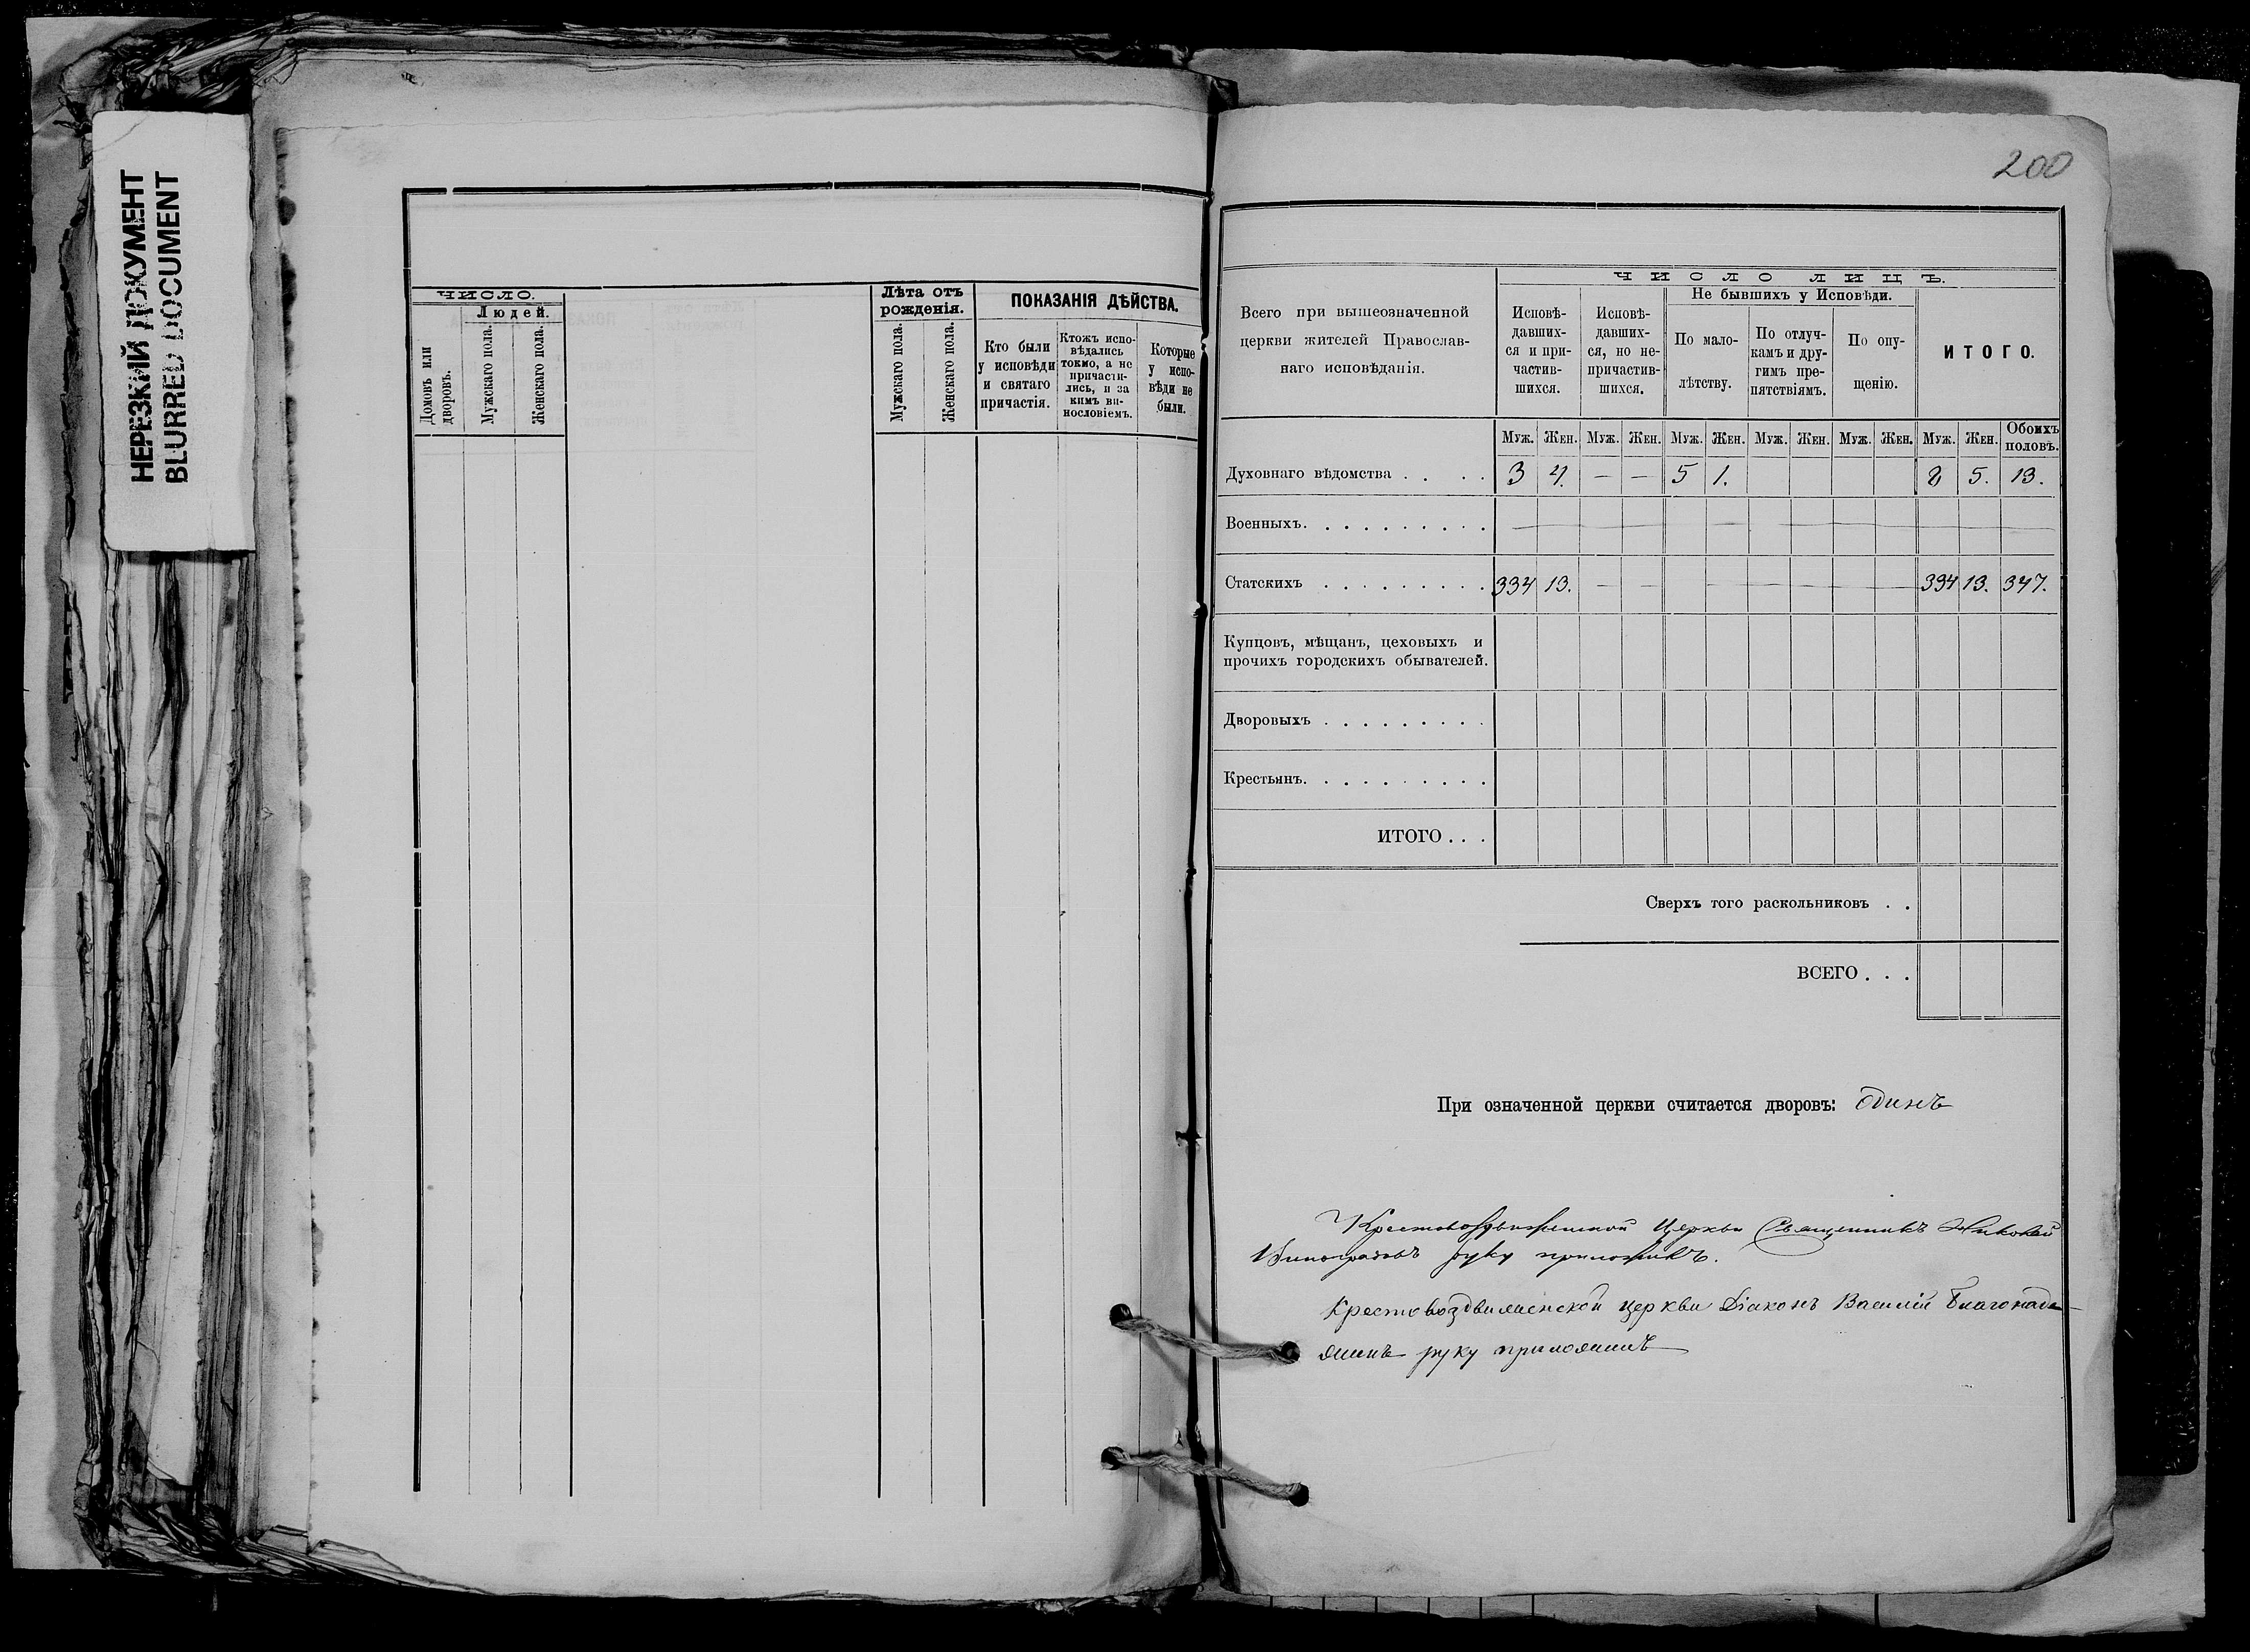 НЕРЕЗКИЙ ДОКУМЕНТ
BLURRED DOCUMENT
ЧИСЛО.
Людей.
Домовъ или дворовъ.
Мужскаго пола.
Женскаго пола.
Лѣта отъ рожденія.
Мужскаго пола.
Женскаго пола.
ПОКАЗАНІЯ ДѢЙСТВА.
Кто были
у исповѣди
и святаго
причастія.
Ктожъ испо-
вѣдались
токмо, а не
причасти-
лись, и за
кимъ ви-
нословіемъ.
Которые
у испо-
вѣди не
были.
200
Всего при вышеозначенной
церкви жителей Православ-
наго исповѣданія.
ЧИСЛО ЛИЦЪ.
Исповѣ-
давших-
ся и при-
частив-
шихся.
Исповѣ-
давших-
ся, но не-
причастив-
шихся.
Не бывшихъ у Исповѣди.
По мало-
лѣтству.
По отлуч-
камъ и дру-
гимъ пре-
пятствіямъ.
По опу-
щенію.
ИТОГО.
Муж. Жен. Муж. Жен. Муж. Жен. Муж. Жен. Муж. Жен. Муж. Жен. Обоихъ половъ.
Духовнаго вѣдомства . . . . 3 4. — — 5 1. 8 5. 13.
Военныхъ. . . . . . . . . .
Статскихъ . . . . . . . . . 334 13. — — 334 13. 347.
Купцовъ, мѣщанъ, цеховыхъ и
прочихъ городскихъ обывателей.
Дворовыхъ . . . . . . . . .
Крестьянъ. . . . . . . . . .
ИТОГО . . .
Сверхъ того раскольниковъ . .
ВСЕГО . . .
При означенной церкви считается дворовъ: одинъ
Крестовоздвиженской Церкви Священникъ Николай
Виноградовъ руку приложилъ.
Крестовоздвиженской церкви Діаконъ Василій Благонаде-
жинъ руку приложилъ